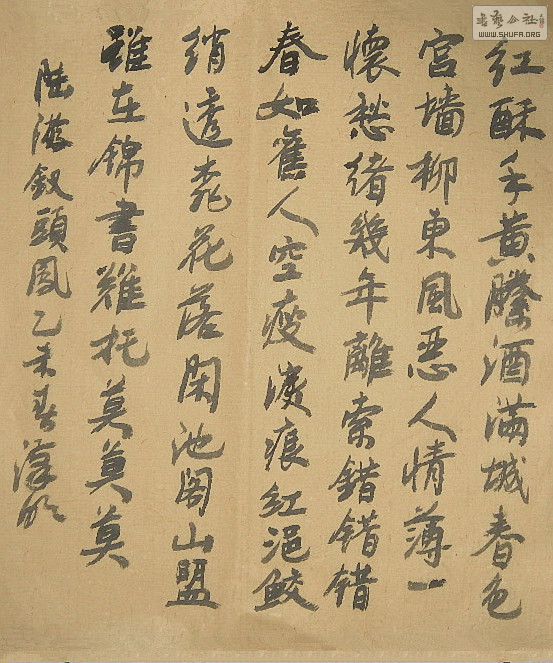 书艺公社
WWW.SHUFA.ORG
红酥手黄縢酒滿城春色
宫墙柳東風恶人情薄一
懷愁緒幾年離索錯錯错
春如舊人空瘦淚痕红浥鲛
绡透桃花落閑池阁山盟
雖在锦書難托莫莫莫
陆游釵頭鳳乙未春